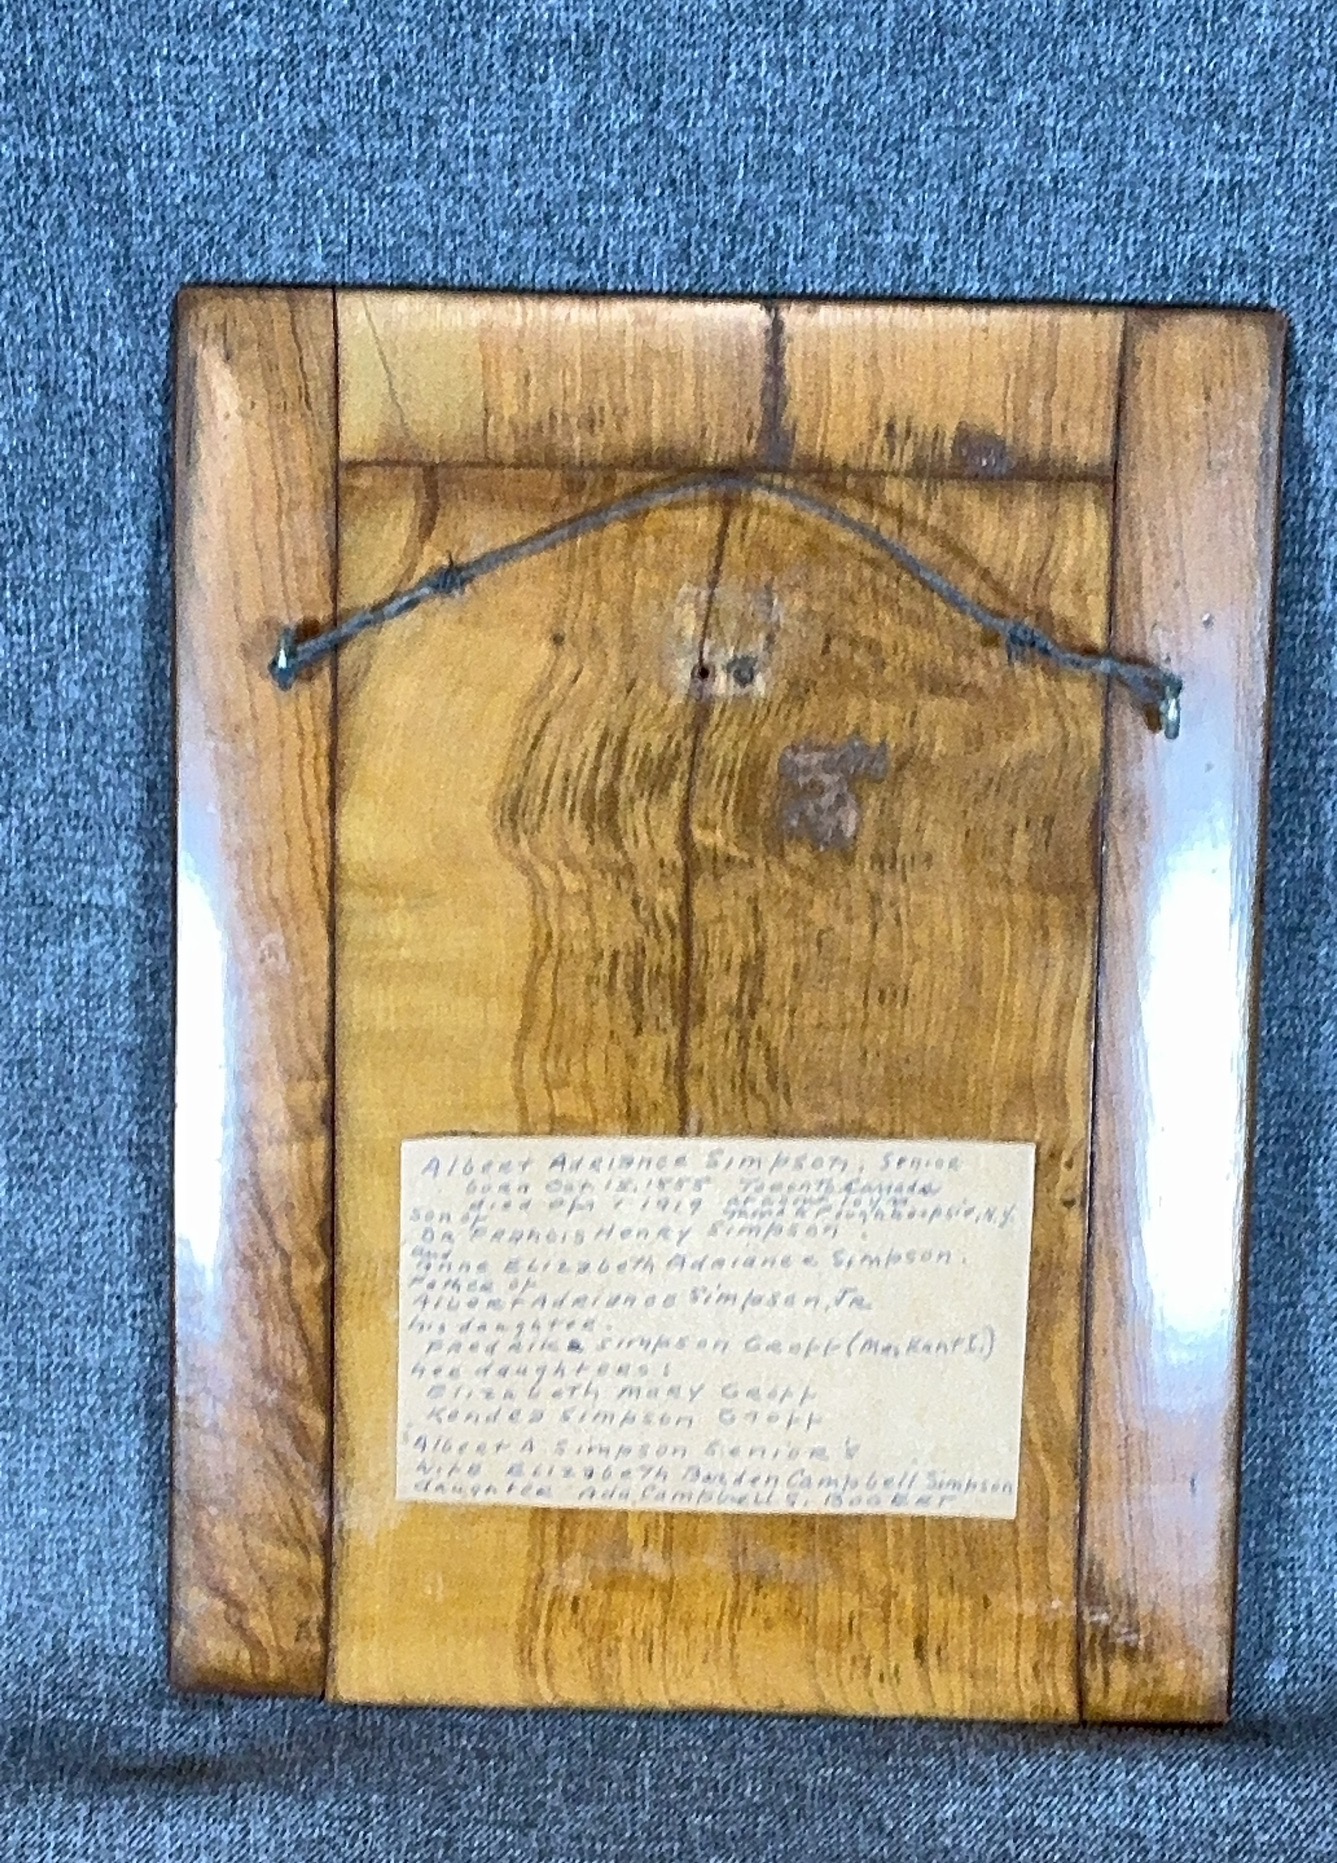 Albert Adriance Simpson, Senior
born Oct. 12, 1855 Toronto Canada
died Apr 1919 Poughkeepsie, N.Y.
son of
Dr Francis Henry Simpson
and
Anne Elizabeth Adriance Simpson.
Father of
Albert Adriance Simpson, Jr.
his daughter.
Simpson Groff
her daughters:
Elizabeth Mary Groff
Simpson Groff
Albert A. Simpson Senior's
wife Elizabeth Borden Campbell Simpson
daughter Ada Campbell S. Booker